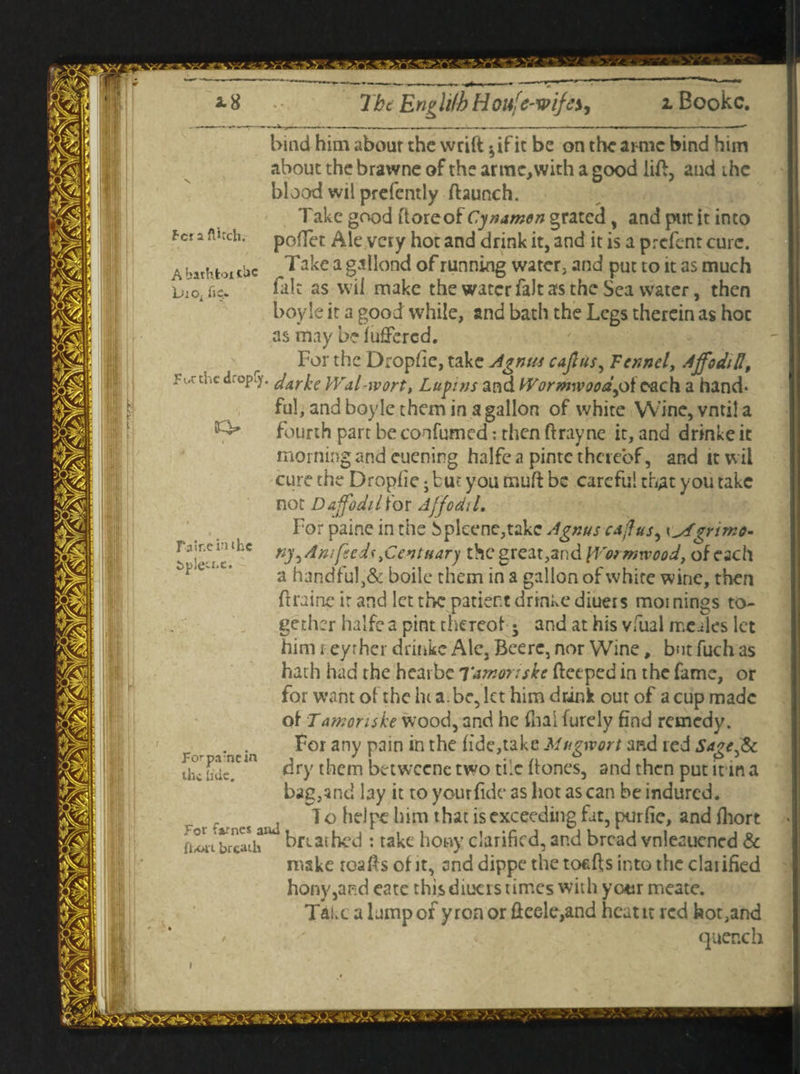 28 The English House-wifes, 2 Booke.
bind him about the wrist; if it be on the arme bind him
about the brawne of the arme, with a good list, and the
blood wil presently staunch.
For a stitch.
Take good store of Cynamon grated, and put it into
posset Ale very hot and drink it, and it is a present cure.
A bath for the
Take a gallond of running water, and put to it as much
salt as wil make the water salt as the Sea water, then
boyle it a good while, and bath the Legs therein as hot
as may be suffered.
For the dropsy.
For the Dropsie, take Agnus castus, Fennel, Affodill,
darke Wal-wort, Lupins and Wormwood, of each a hand-
ful, and boyle them in a gallon of white Wine, vntil a
fourth part be consumed: then strayne it, and drinke it
morning and euening halfe a pinte thereof, and it wil
cure the Dropsie; but you must be careful that you take
not Daffodil for Affodil.
Paine in the
Spleene.
For paine in the Spleene, take Agnus castus, Agrimo-
ny, Aniseeds, Centuary the great, and Wormwood, of each
a handful, & boile them in a gallon of white wine, then
straine it and let the patient drinke diuers mornings to-
gether halfe a pint thereof; and at his vsual meales let
him neyther drinke Ale, Beere, nor Wine, but such as
hath had the hearbe Tamoriske steeped in the same, or
for want of the hearbe, let him drink out of a cup made
of Tamoriske wood, and he shal surely find remedy.
For paine in
the side.
For any pain in the side, take Mugwort and red Sage, &
dry them betweene two tile stones, and then put it in a
bag, and lay it to your side as hot as can be indured.
For fatnes and
short breath
To helpe him that is exceeding fat, pursie, and short
breathed: take hony clarified, and bread vnleauened &
make toasts of it, and dippe the toasts into the clarified
hony, and eate this diuers times with your meate.
Take a lump of yron or steele, and heat it red hot, and
quench